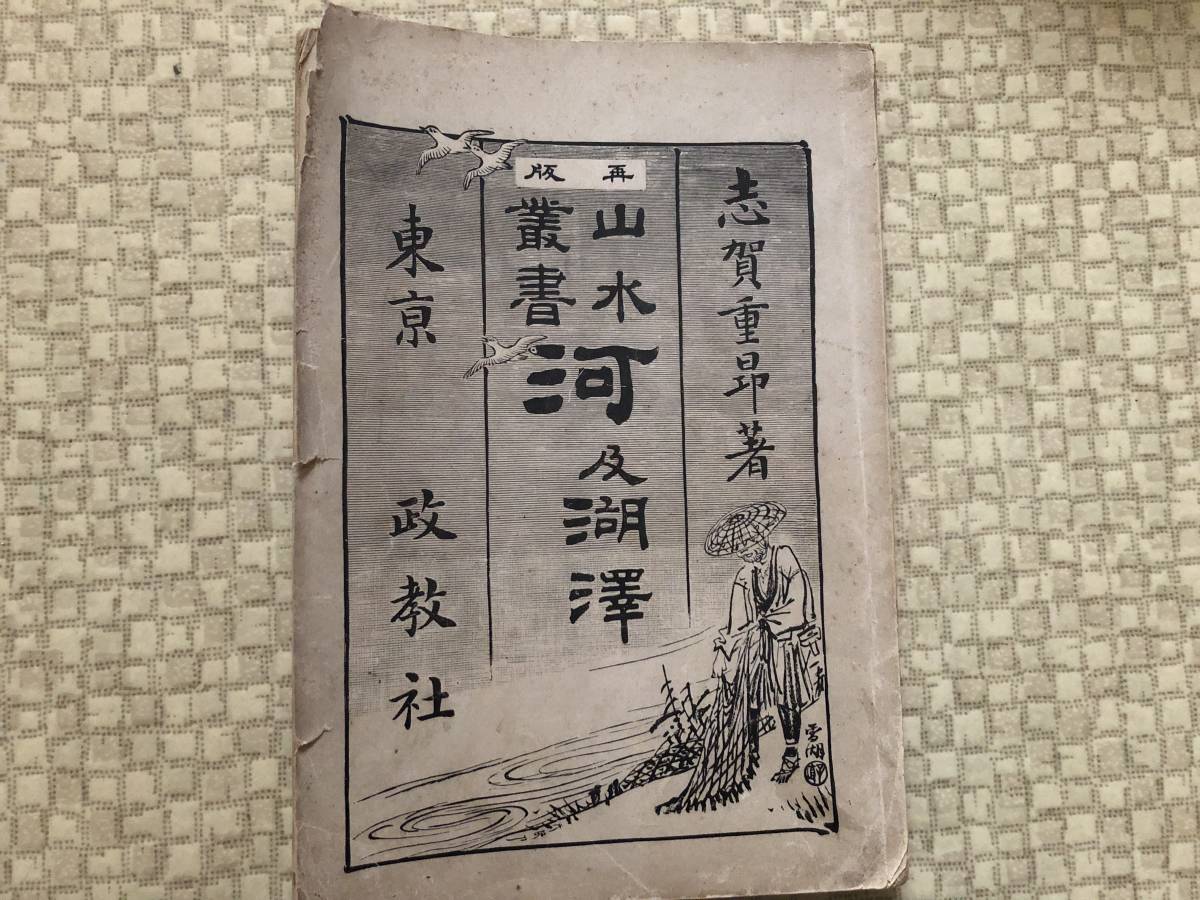 志賀重昻著
再版
山水
叢書
河及湖澤
東京 政教社
雪湖